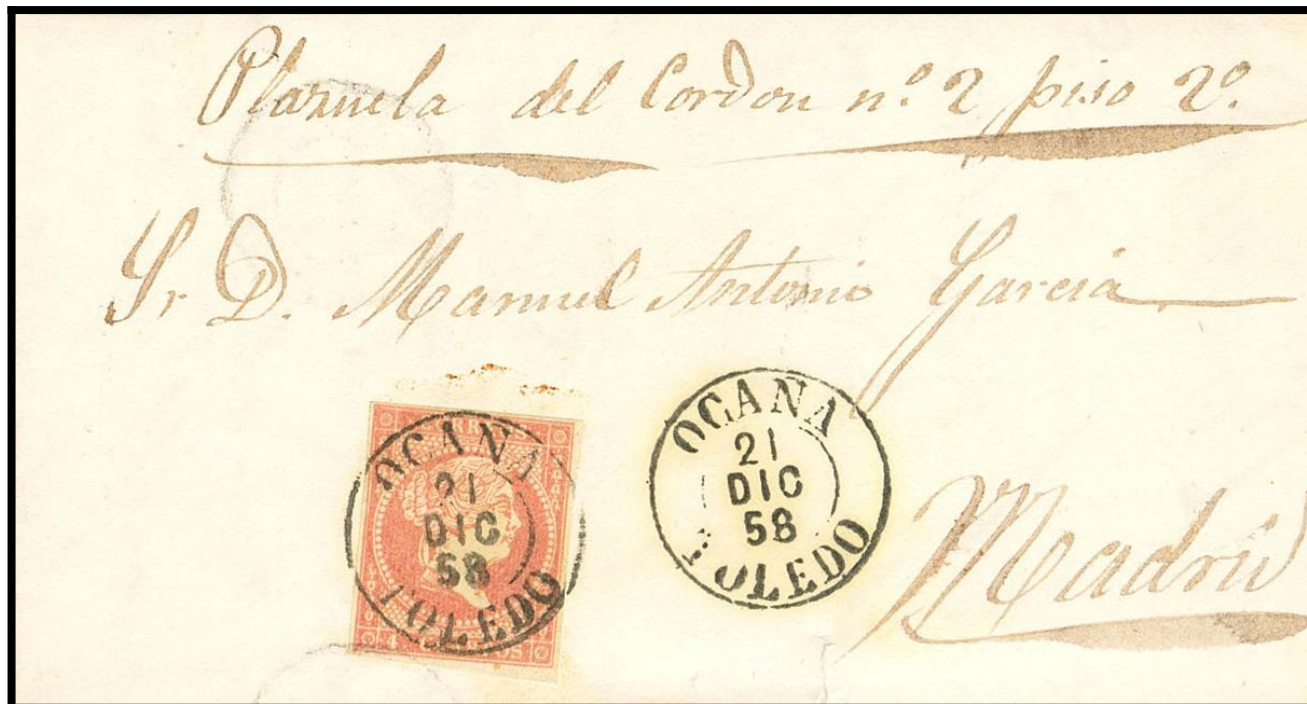 Plazuela del Cordon nº. 2 piso 2º.
Sr D. Manuel Antonio Garcia
OCANA
21
DIC
58
TOLEDO
OCANA
21
DIC
58
TOLEDO
Madrid